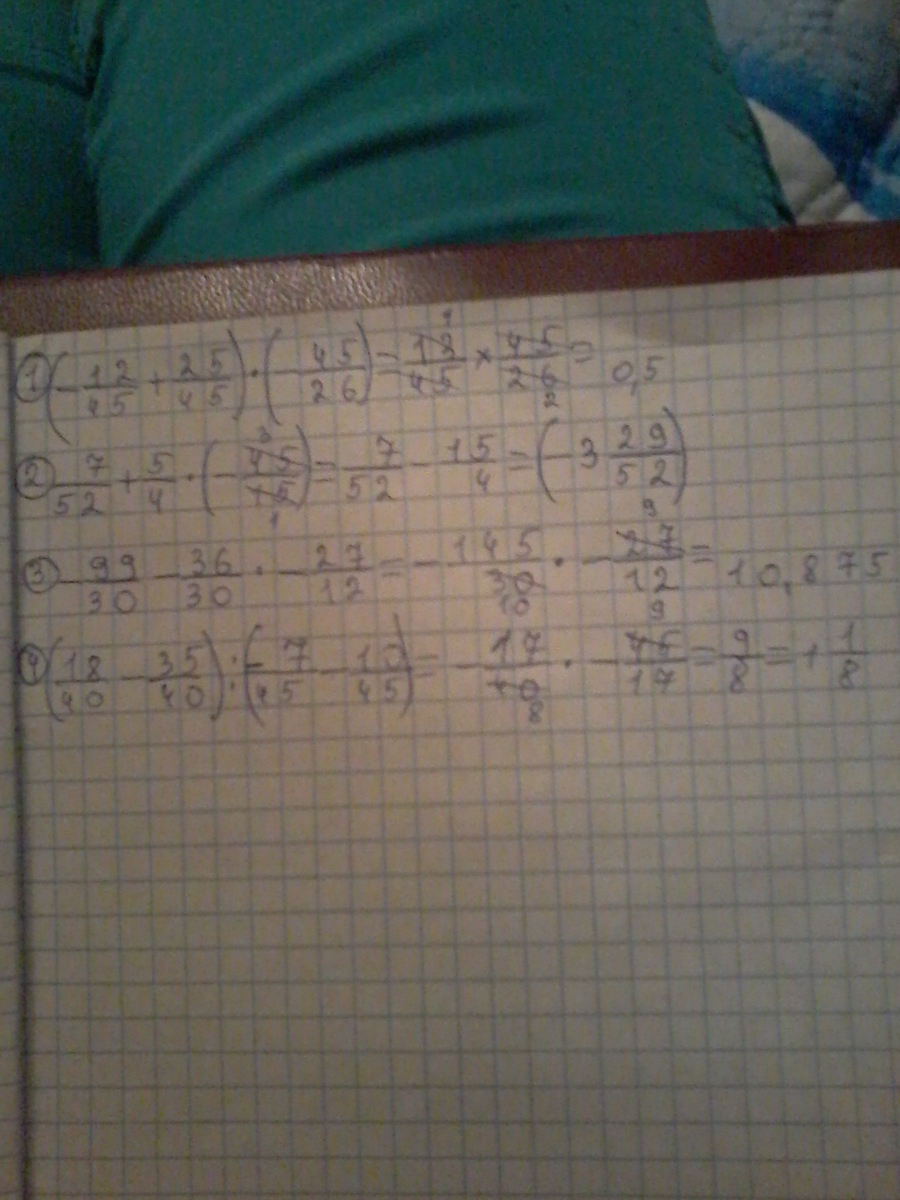 ① (-12/45 + 25/45) · (-45/26) = 13/45 × 45/26 = 0,5
② 7/52 + 5/4 · (-45/15) = 7/52 - 15/4 = (-3 29/52)
③ -99/30 - 36/30 · -27/12 = -145/30 · -27/12 = 10,875
④ (18/40 - 35/40) : (-7/45 - 10/45) = -17/40 · -45/17 = 9/8 = 1 1/8